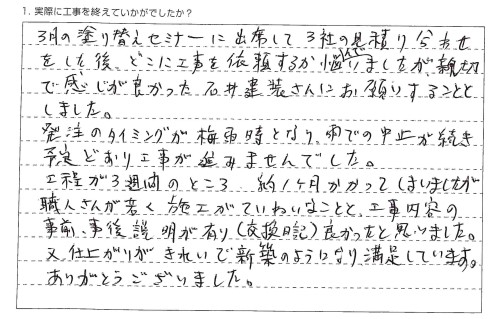 1. 実際に工事を終えていかがでしたか？
3月の塗り替えセミナーに出席して3社の見積り合わせ
をした後、どこに工事を依頼するか悩んでいましたが、親切
で感じが良かった石井塗装さんにお願いすることと
しました。
発注のタイミングが梅雨時となり、雨での中止が続き
予定どおり工事が進みませんでした。
工程が3週間のところ 約1ヶ月かかってしまいましたが
職人さんが若く施工がていねいなことと、工事内容の
事前、事後説明が有り（交換日記）良かったと思いました。
又、仕上がりがきれいで新築のようになり満足しています。
ありがとうございました。